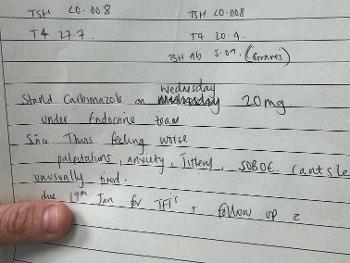 TSH <0.008 TSH <0.008
T4 27.7. T4 20.4.
TSH Ab 5.07. (Graves)
Wednesday
Startd Carbimazole on 20mg
under Endocrine team
Since Thurs feeling worse
palpitations, anxiety, Jittery, SOBOE. cant sle
unusually tired.
due 19th Jan for TFTs + follow up